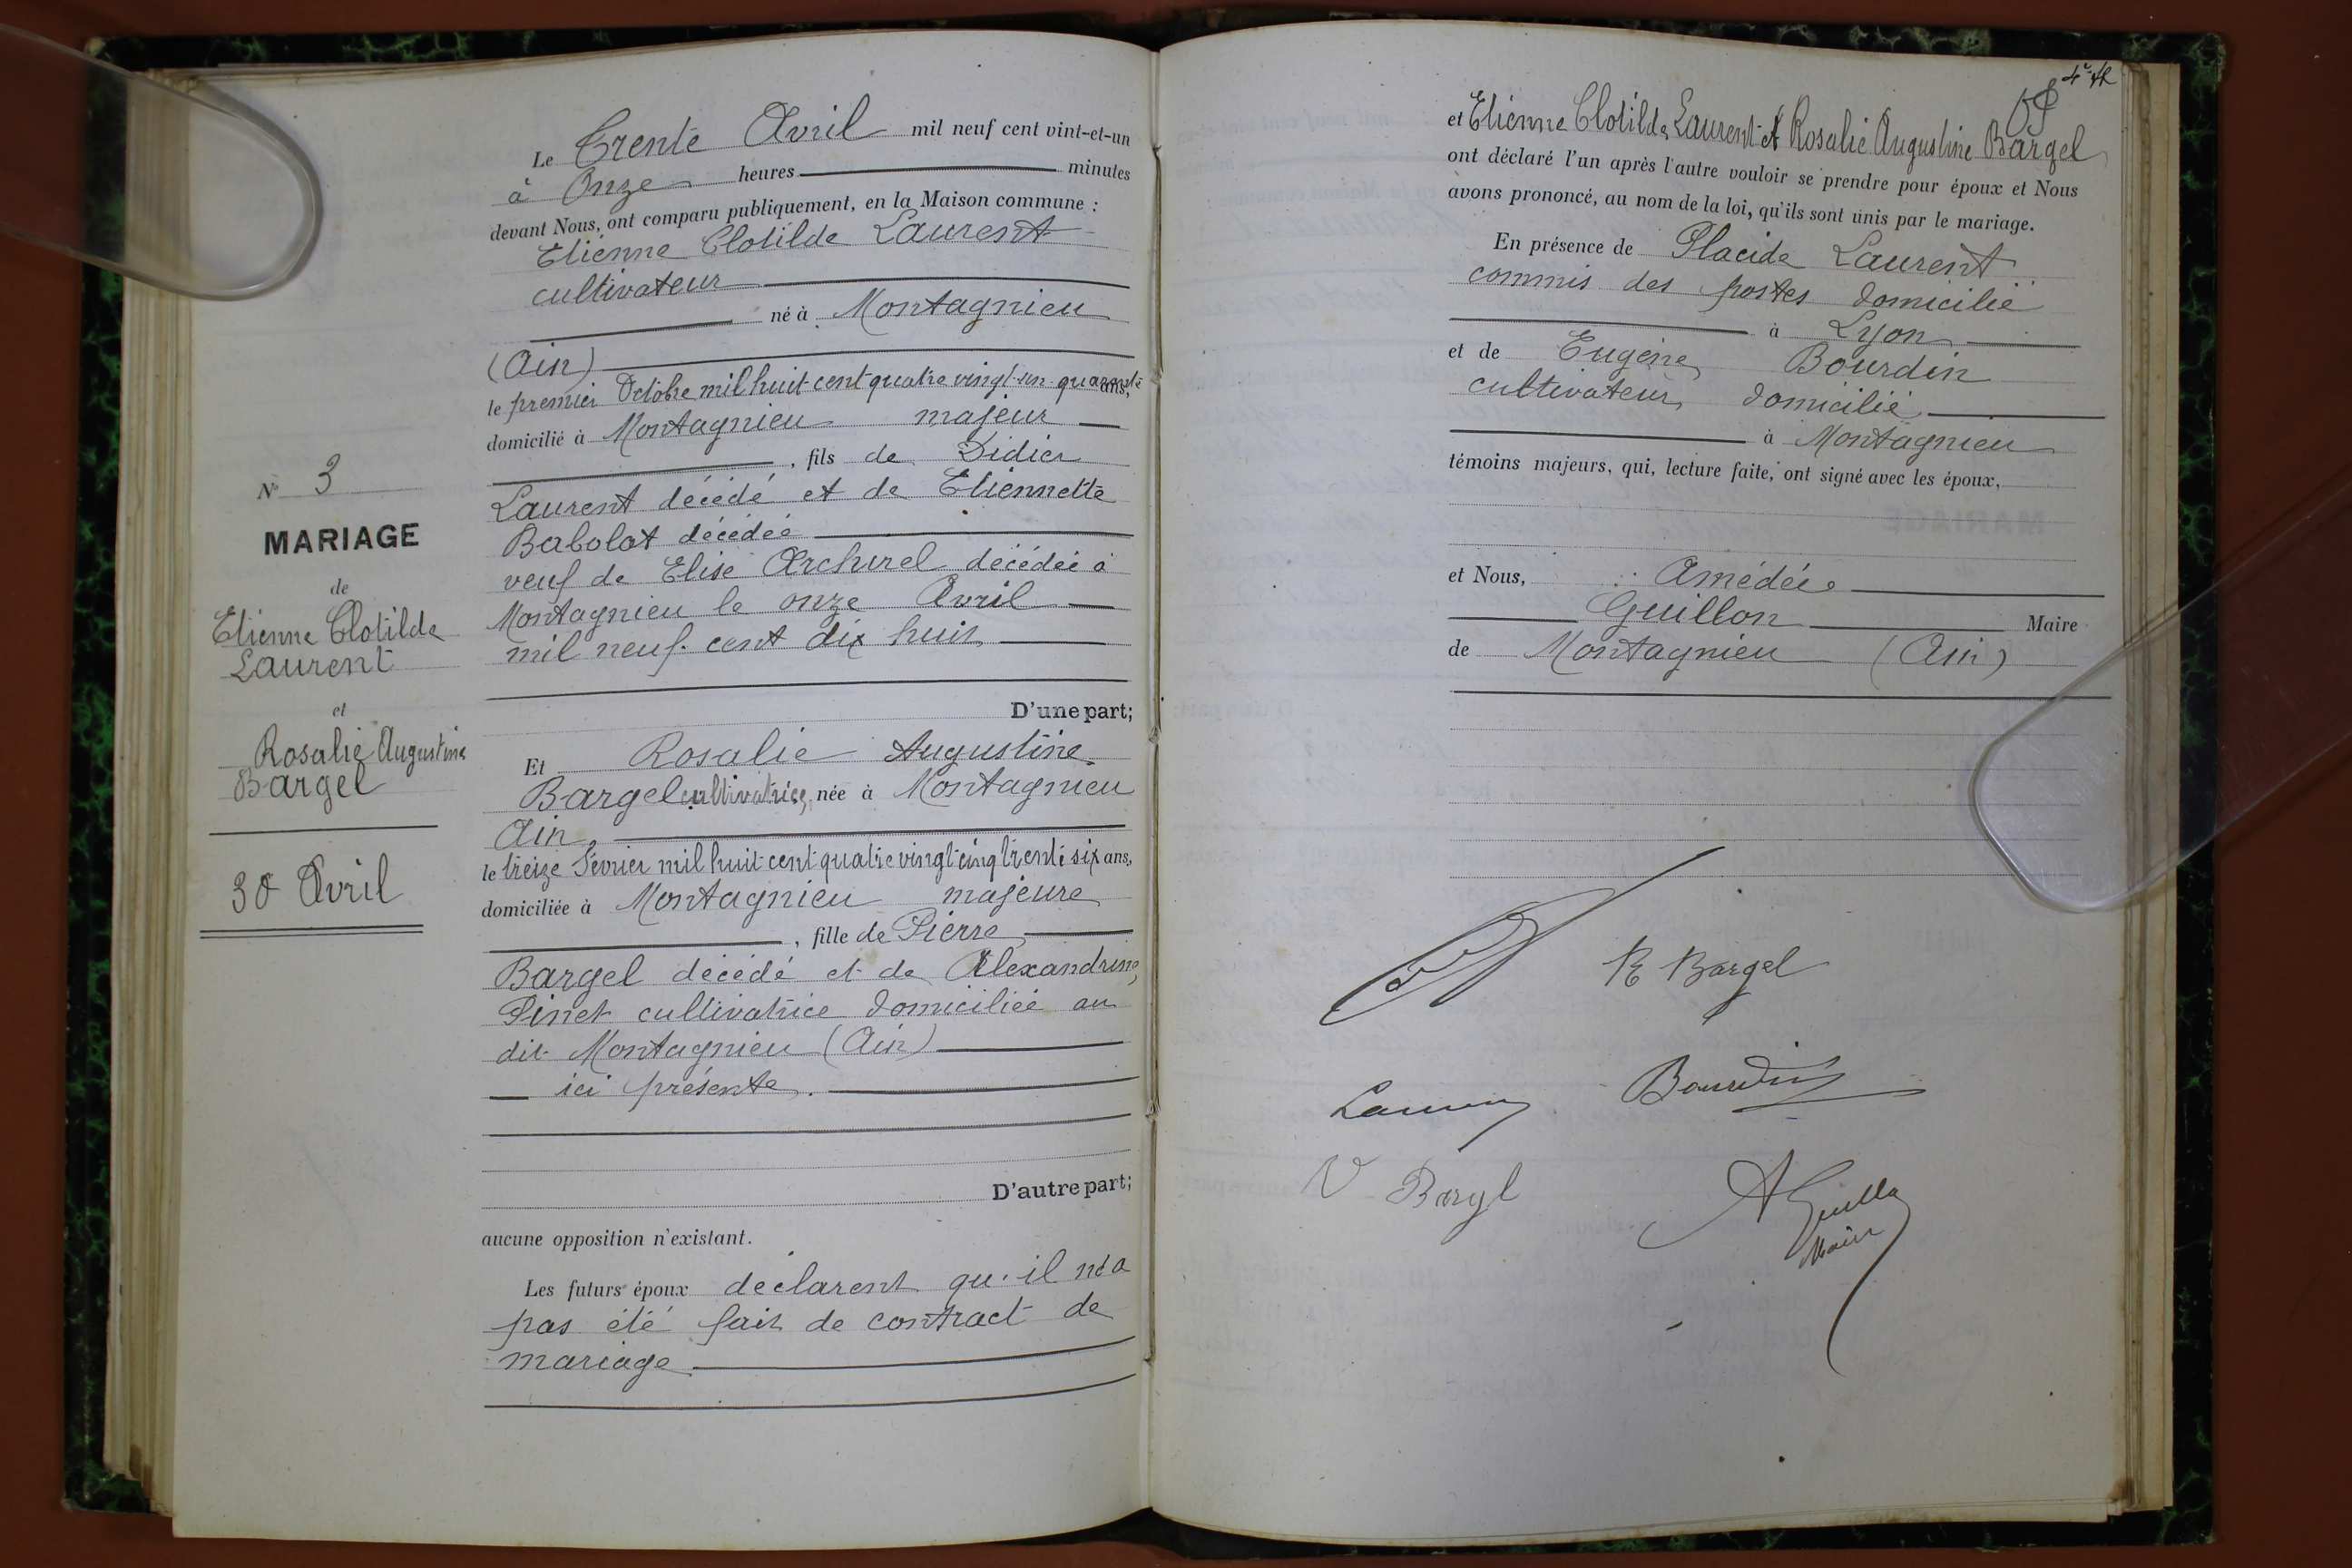 N° 3
MARIAGE
de
Etienne Clotilde
Laurent
et
Rosalie Augustine
Bargel
30 Avril
Le Trente Avril mil neuf cent vint-et-un
à Onze heures minutes
devant Nous, ont comparu publiquement, en la Maison commune :
Etienne Clotilde Laurent
cultivateur
né à Montagnieu
(Ain)
le premier Octobre mil huit cent quatre vingt un quarante ans,
domicilié à Montagnieu majeur
, fils de Didier
Laurent décédé et de Etiennette
Babolat décédée
veuf de Elise Archirel décédée à
Montagnieu le onze Avril
mil neuf cent dix huit
D'une part;
Et Rosalie Augustine
Bargel cultivatrice, née à Montagnieu
Ain,
le treize Février mil huit cent quatre vingt cinq trente six ans,
domiciliée à Montagnieu majeure
, fille de Pierre
Bargel décédé et de Alexandrine
Pinet cultivatrice domiciliée au
dit Montagnieu (Ain)
ici présente.
D'autre part;
aucune opposition n'existant.
Les futurs époux déclarent qu'il n'a
pas été fait de contract de
mariage
et Etienne Clotilde Laurent et Rosalie Augustine Bargel
ont déclaré l'un après l'autre vouloir se prendre pour époux et Nous
avons prononcé, au nom de la loi, qu'ils sont unis par le mariage.
En présence de Placide Laurent
commis des postes domicilié
à Lyon
et de Eugène Bourdin
cultivateur, domicilié
à Montagnieu
témoins majeurs, qui, lecture faite, ont signé avec les époux,
et Nous, Amédée
Guillon Maire
de Montagnieu (Ain)
R Bargel
Laurent
Bourdin
V Bargel
A Guillon
Maire